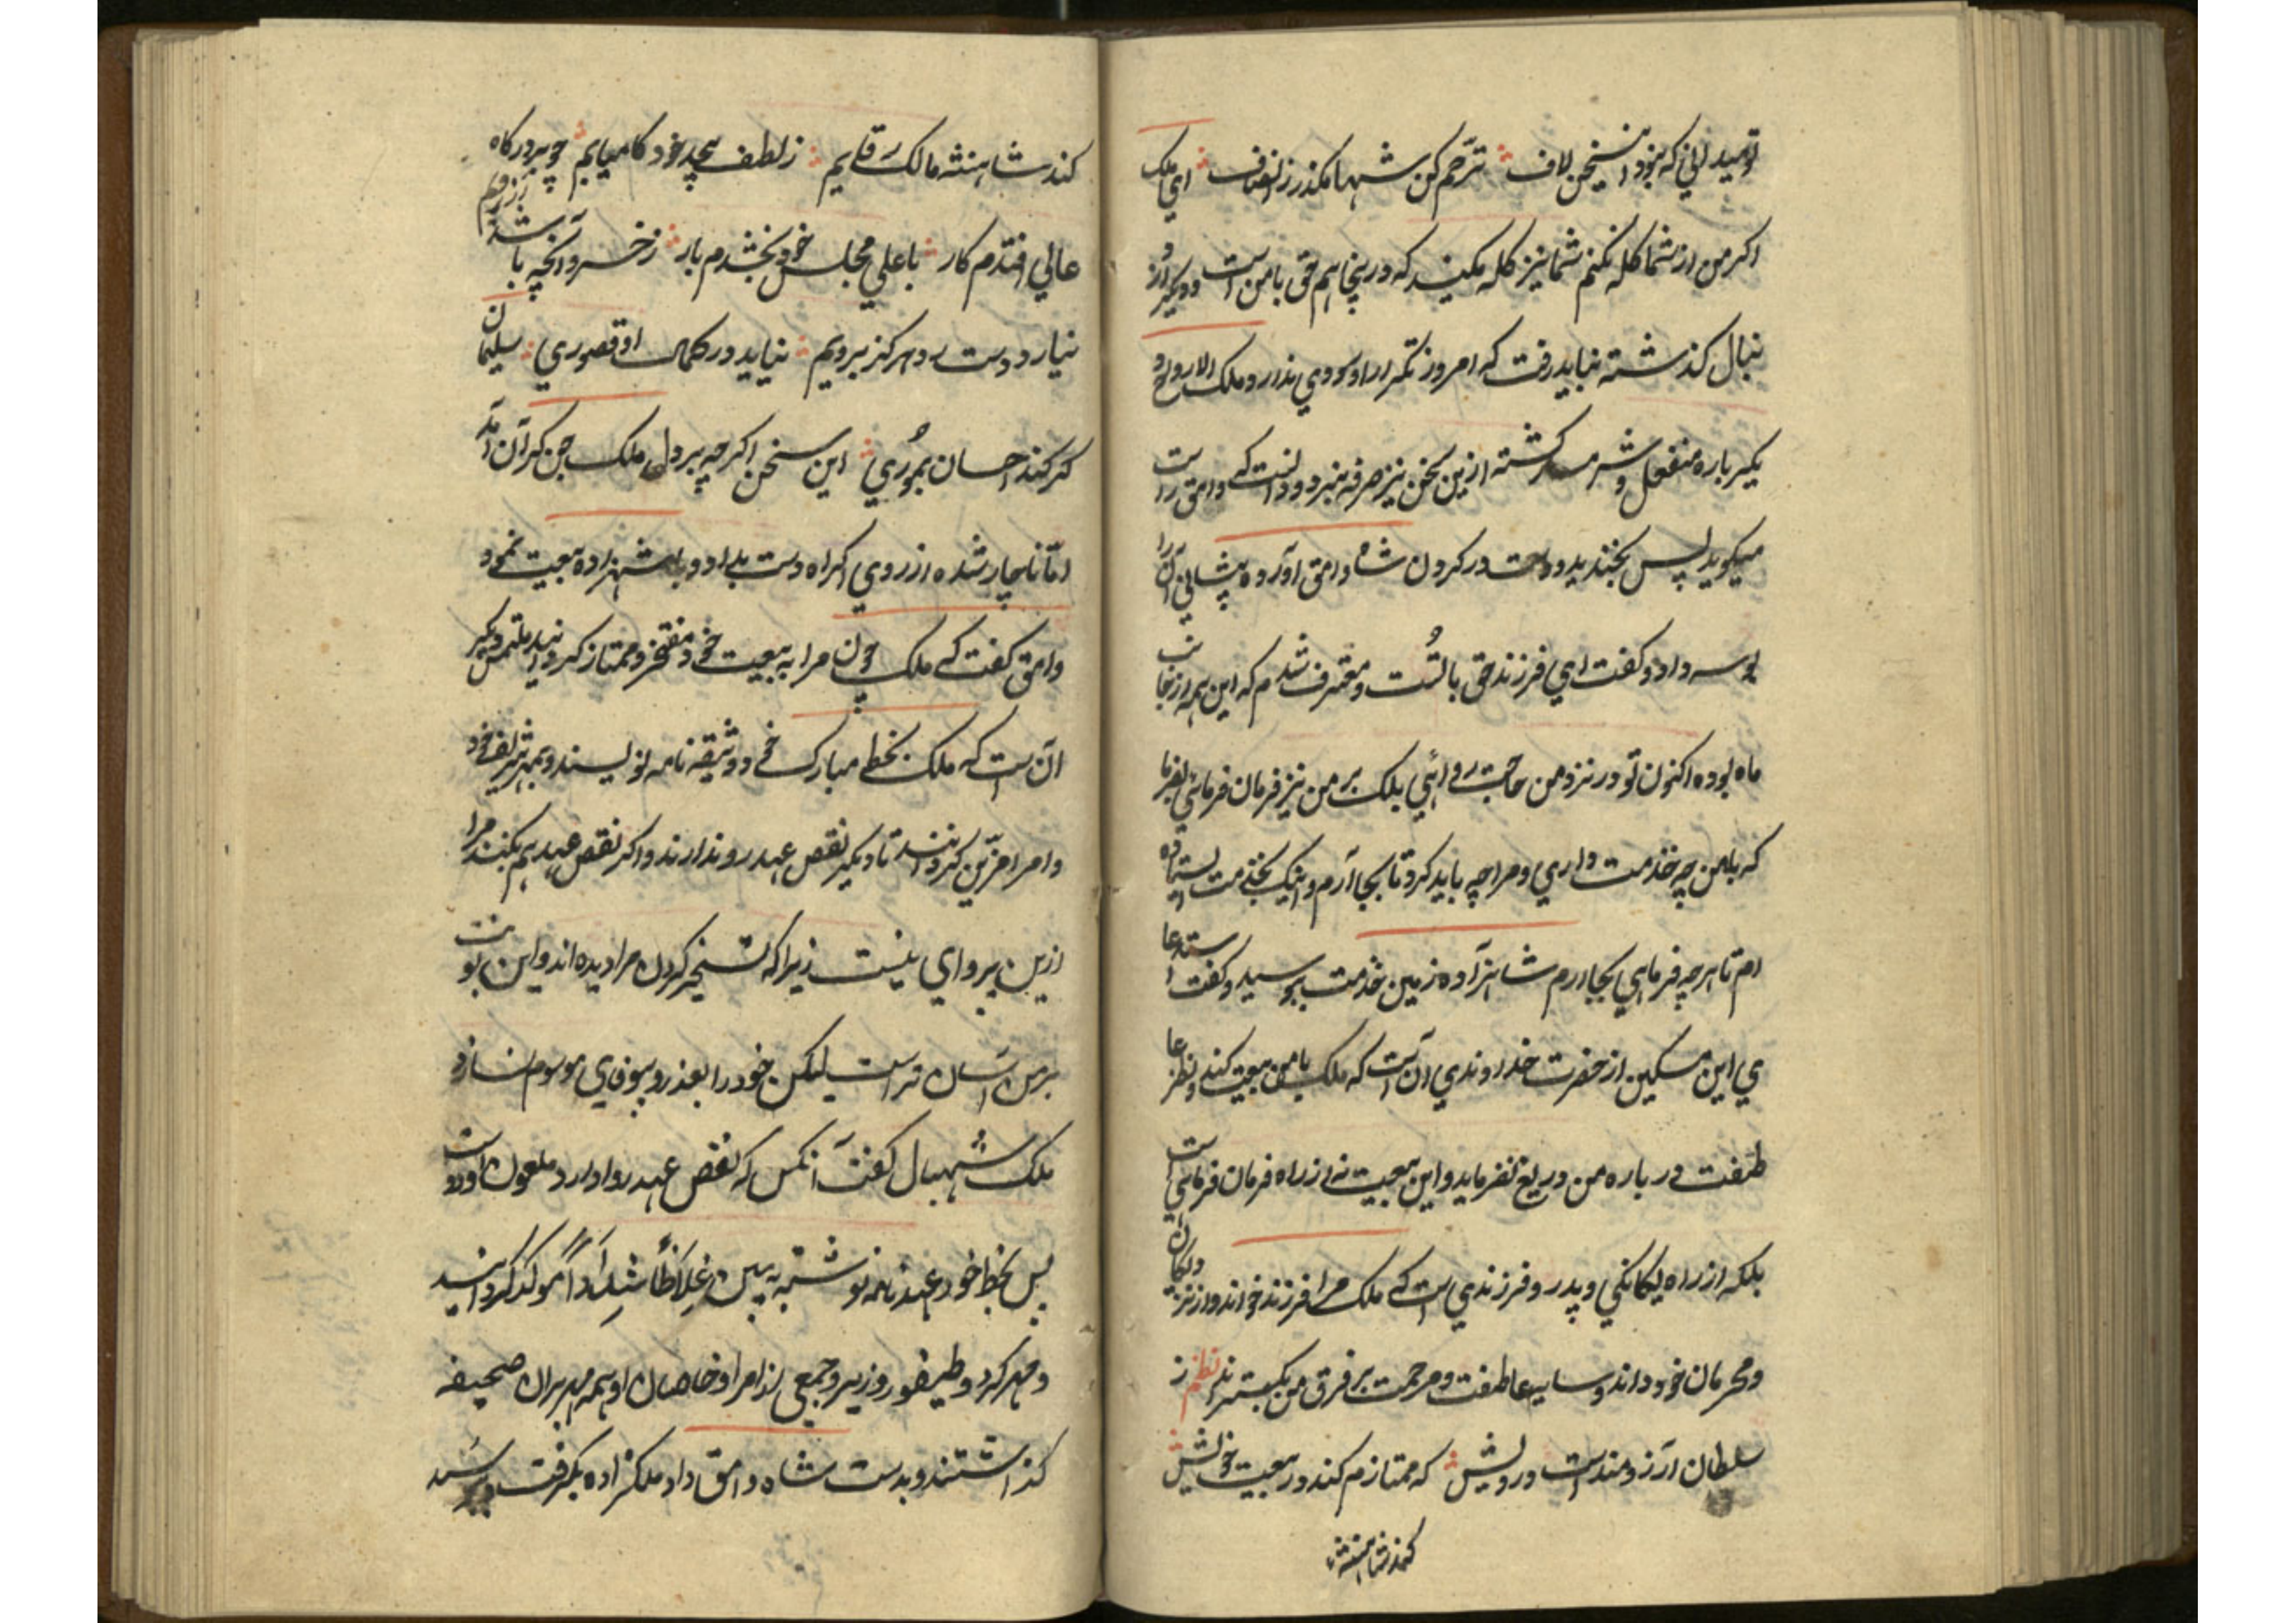 تو میدانی که نبود این سخن لاف ترحم کن شها مگذر ز انصاف ای ملک
اکر من از شما کله نکنم شما نیز کله مکنید که درینجا هم حق با من است و دیکر از
نبال کذشته نباید رفت که امروز تکرار او سودی ندارد و ملک الارواح
یکبارہ منفعل و شرمسار کشته ازین سخن نیز صرفه نبرد و دانست که وامق راست
میکوید پس بخندید و دست در کردن شاه وامق آورده پیشانی آن را
بوسه داد و کفت ای فرزند حق با تست و معترف شدم که این همه از جانب
ماه بوده اکنون تو در نزد من حاجت روائی بلک بر من نیز فرمان فرمائی بفرما
که با من چه خدمت داری و مرا چه باید کرد تا بجا آرم و اینک بخدمت ایستاده
ام تا هرچه فرمایی بجا آرم شاهزاده زمین خدمت ببوسید و کفت استدعا
ی این مسکین از حضرت خداوندی آن است که ملک با من بیعت کند و نظر عا
طفت در باره من دریغ نفرماید و این بیعت نه از راه فرمان فرمائی است
بلکه از راه یکانکی و پدر و فرزندی است که ملک مرا فرزند خواند و از نزدیکان
و محرمان خود داند و سایه عاطفت و مرحمت بر فرق من بکستراند نظم ز
سلطان آرزومند است درویش که ممتازم کند در بیعت خویش
کند شاهنشه
کند شاهنشه مالک رقابیم ز لطف بیحد خود کامیابیم چو بر درکاه
عالی افتدم کار باعلی مجلس خود بخشدم بار ز خسرو آنچه باشد
نیارد دست رد هرکز برویم نیاید در کمال او قصوری سلیمان
کر کند احسان بموری این سخن اکرچه بر دل ملک جن کران آمد
اما ناچار شده از روی اکراه دست بداد و با شهزاده بیعت نمود
وامق کفت که ملک چون مرا به بیعت خود مفتخر و ممتاز کردانید ملتمس دیکر
آن است که ملک بخط مبارک خود وثیقه نامه نویسند و بمهر شریف خود
و امرا مزین کردانند تا دیکر نقص عهد روندارند و اکر نقص عهد هم بکنند مرا
ازین پروای نیست زیرا که تسخیر کردن مرا دیده اند و این نوبت
بر من آسان تر است لیکن خود را بعذر و بیوفای موسوم نسازد
ملک شهبال کفت آنکس که نقص عهد روا دارد ملعون است
پس بخط خود عهدنامه نوشته به یمین غلاظاً شداداً موکد کردانید
و مهر کرد و طیفور وزیر و جمعی از امرا و خاصان او همه مهر بران صحیفه
کذاشتند و بدست شاه وامق داد ملکزاده بکرفت و بوسید